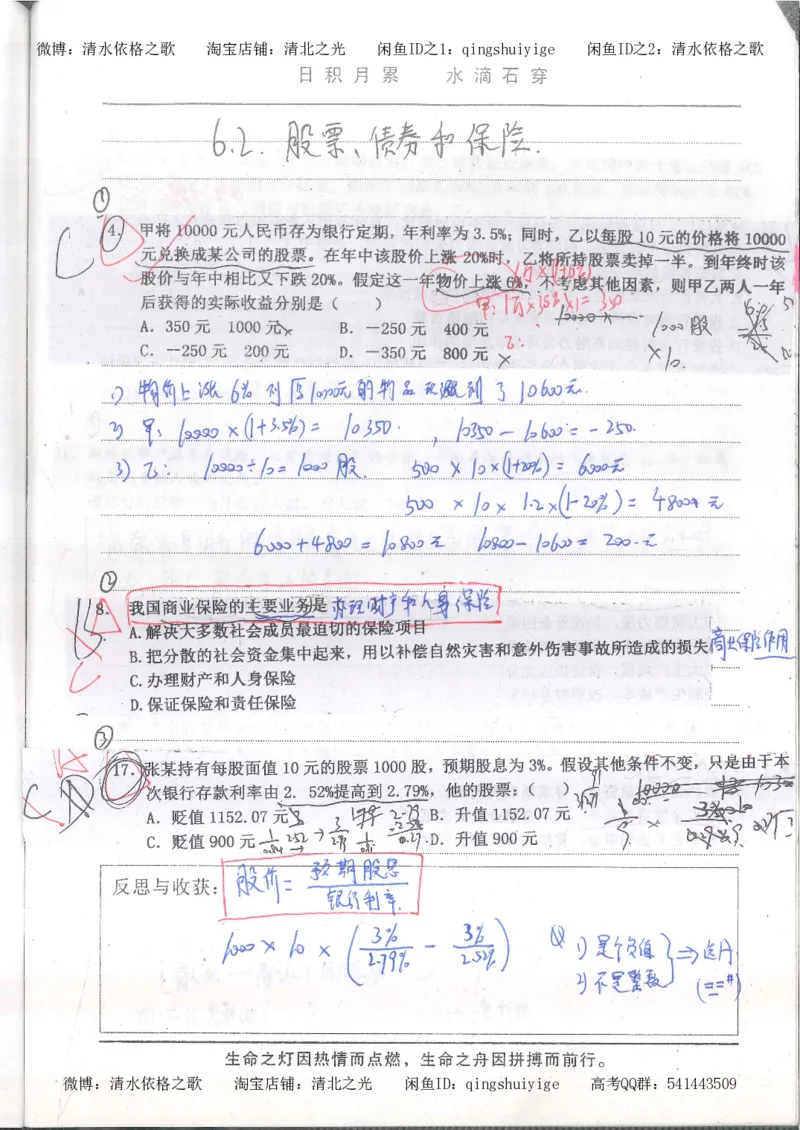 微博：清水依格之歌 淘宝店铺：清北之光 闲鱼ID之1：qingshuiyige 闲鱼ID之2：清水依格之歌
日积月累 水滴石穿
6.2. 股票、债券和保险.
①
C 4. 甲将10000元人民币存为银行定期，年利率为3.5%；同时，乙以每股10元的价格将10000
元兑换成某公司的股票。在年中该股价上涨20%时，乙将所持股票卖掉一半。到年终时该
股价与年中相比又下跌20%。假定这一年物价上涨6%，不考虑其他因素，则甲乙两人一年
后获得的实际收益分别是（ ）
A. 350元 1000元 B. -250元 400元
C. -250元 200元 D. -350元 800元
1000股
×10.
1) 物价上涨6%则原10000元的物品现涨到了10600元.
2) 甲：10000×(1+3.5%)= 10350. , 10350-10600=-250.
3) 乙：10000÷10=1000股. 500×10×(1+20%)=6000元
500×10×1.2×(1-20%)=4800元
6000+4800=10800元 10800-10600=200元
②
8. 我国商业保险的主要业务是 办理财产和人身保险
A.解决大多数社会成员最迫切的保险项目
B.把分散的社会资金集中起来，用以补偿自然灾害和意外伤害事故所造成的损失 商业保险作用
C.办理财产和人身保险
D.保证保险和责任保险
③
17. 张某持有每股面值10元的股票1000股，预期股息为3%。假设其他条件不变，只是由于本
次银行存款利率由2.52%提高到2.79%，他的股票：（ ）
A. 贬值1152.07元 B. 升值1152.07元
C. 贬值900元 D. 升值900元
反思与收获： 股价= 预期股息 / 银行利率
1000×10×(3%/2.79% - 3%/2.52%) 1) 是个负值
2) 不是整数 ⇒选A
生命之灯因热情而点燃，生命之舟因拼搏而前行。
微博：清水依格之歌 淘宝店铺：清北之光 闲鱼ID：qingshuiyige 高考QQ群：541443509